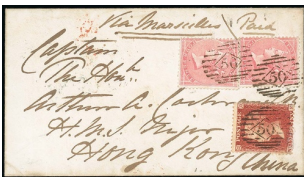 Via Marseilles Paid
Captain
The Honble.
Arthur A. Cochrane
H.M.S. Niger
Hong Kong
China